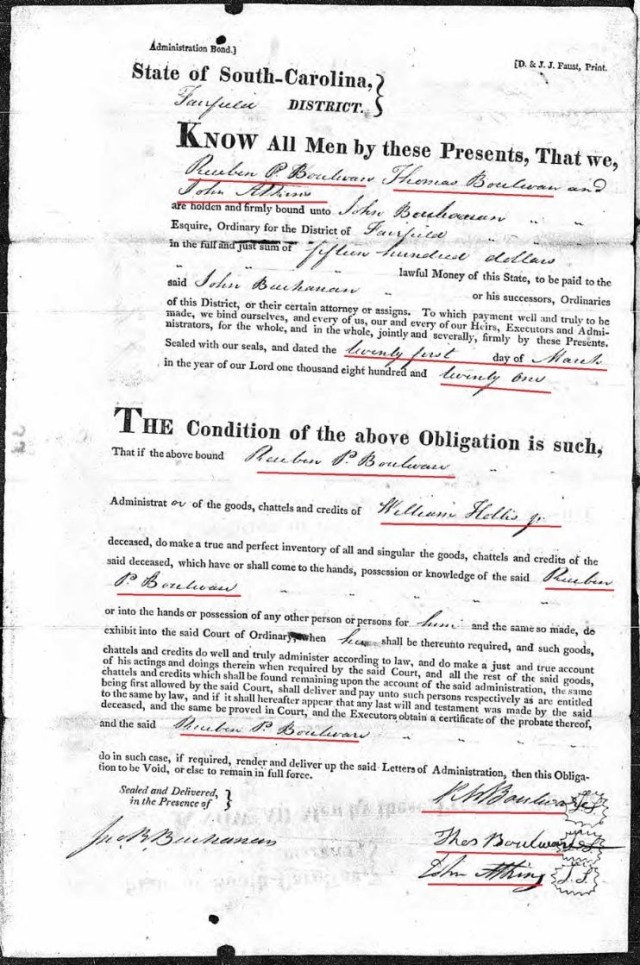 Administration Bond.}
[D. & J. J. Faust, Print.
State of South-Carolina,
Fairfield DISTRICT.
KNOW All Men by these Presents, That we,
Reuben P. Boulwan Thomas Boulwan and
John Atkins
are holden and firmly bound unto John Buchanan
Esquire, Ordinary for the District of Fairfield
in the full and just sum of fifteen hundred dollars
lawful Money of this State, to be paid to the
said John Buchanan or his successors, Ordinaries
of this District, or their certain attorney or assigns. To which payment well and truly to be
made, we bind ourselves, and every of us, our and every of our Heirs, Executors and Admi-
nistrators, for the whole, and in the whole, jointly and severally, firmly by these Presents.
Sealed with our seals, and dated the twenty first day of March
in the year of our Lord one thousand eight hundred and twenty one
THE Condition of the above Obligation is such,
That if the above bound Reuben P. Boulwan
Administrat or of the goods, chattels and credits of William Hollis jr
deceased, do make a true and perfect inventory of all and singular the goods, chattels and credits of the
said deceased, which have or shall come to the hands, possession or knowledge of the said Reuben
P. Boulwan
or into the hands or possession of any other person or persons for him and the same so made, do
exhibit into the said Court of Ordinary, when he shall be thereunto required, and such goods,
chattels and credits do well and truly administer according to law, and do make a just and true account
of his actings and doings therein when required by the said Court, and all the rest of the said goods,
chattels and credits which shall be found remaining upon the account of the said administration, the same
being first allowed by the said Court, shall deliver and pay unto such persons respectively as are entitled
to the same by law, and if it shall hereafter appear that any last will and testament was made by the said
deceased, and the same be proved in Court, and the Executors obtain a certificate of the probate thereof,
and the said Reuben P. Boulwan
do in such case, if required, render and deliver up the said Letters of Administration, then this Obliga-
tion to be Void, or else to remain in full force.
Sealed and Delivered,
in the Presence of
Jno. R. Buchanan
Boulwan
Thos Boulwan
John Atkins L.S.